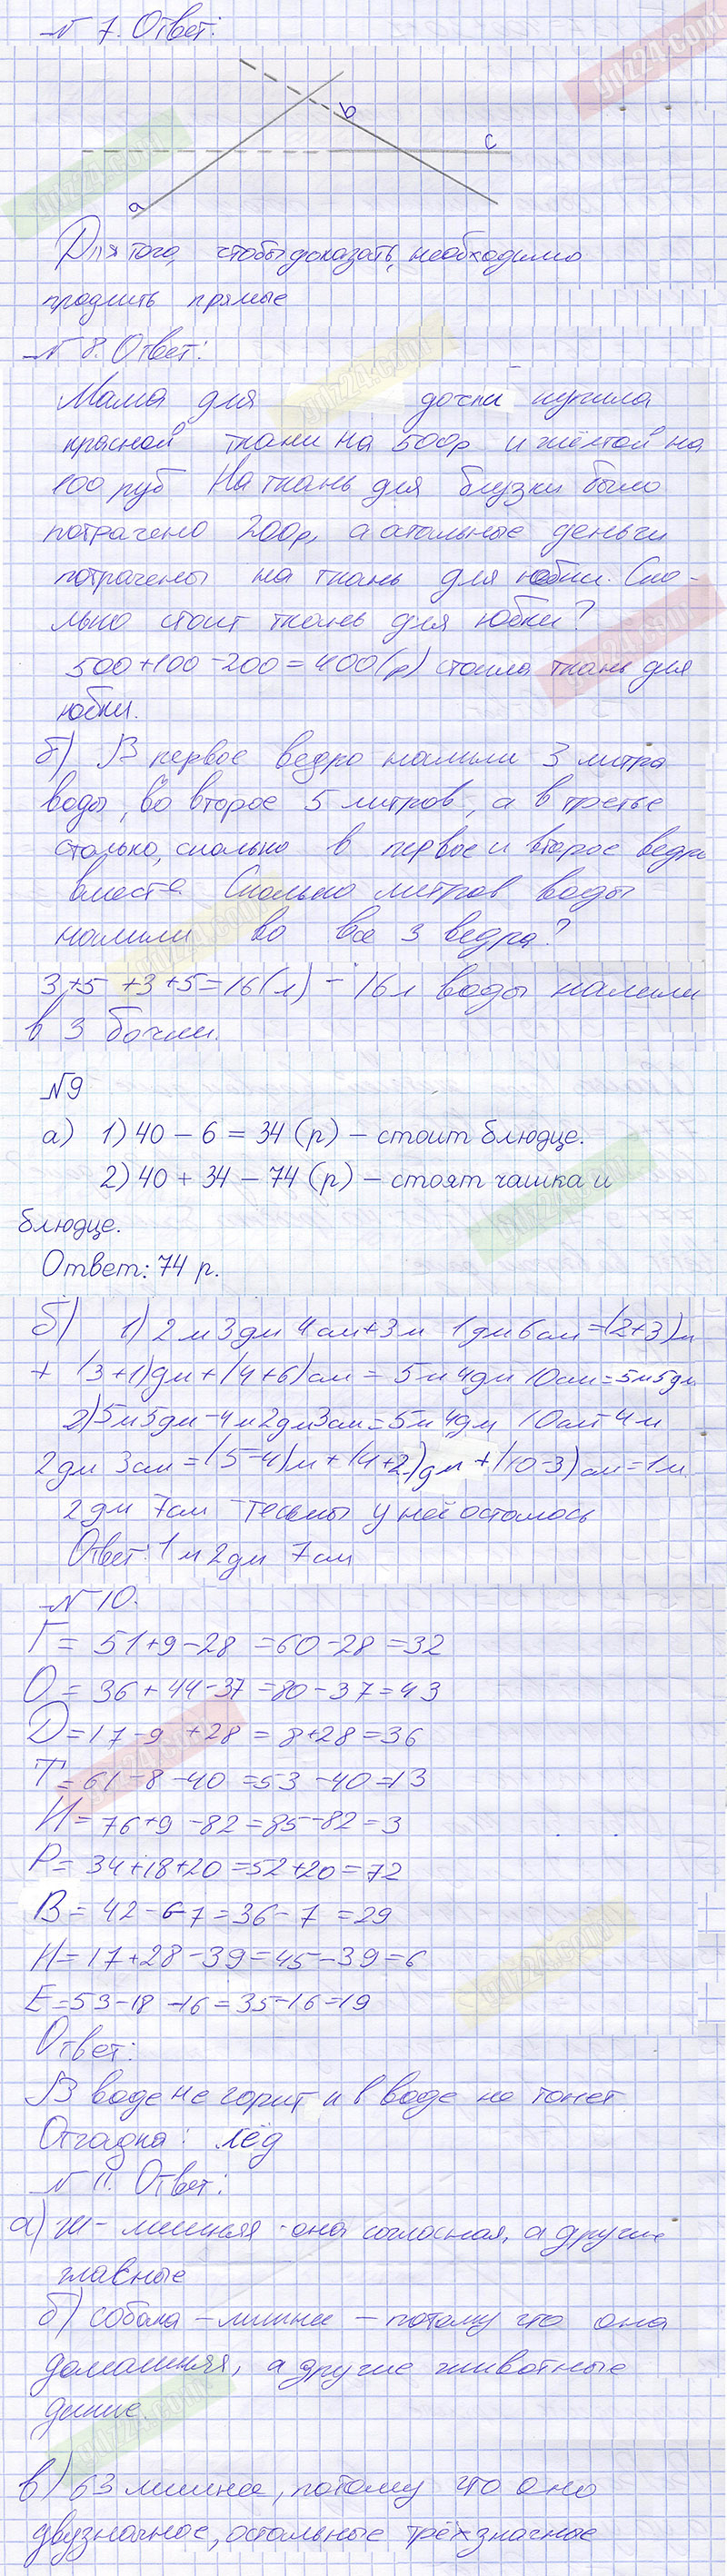 № 7. Ответ:
a b c
Для того, чтобы доказать, необходимо
продлить прямые
№ 8. Ответ:
Мама для дочки купила
красной ткани на 500р и жёлтой на
100 руб На ткань для блузки было
потрачено 200р, а отальные деньги
потрачены на ткань для юбки. Ско-
лько стоит ткань для юбки?
500+100-200=400(р) стоила ткань для
юбки.
б) В первое ведро налили 3 литра
воды, во второе 5 литров, а в третье
столько, сколько в первое и второе ведро
вместе. Сколько литров воды
налили во все 3 ведра?
3+5+3+5=16(л) - 16л воды налили
в 3 бочки.
№9
а) 1) 40 - 6 = 34 (р) - стоит блюдце.
2) 40 + 34 - 74 (р) - стоят чашка и
блюдце.
Ответ: 74 р.
б) 1) 2м 3дм 4см+3м 1дм 6см=(2+3)м
+ (3+1)дм+(4+6)см = 5м 4дм 10см=5м5дм
2) 5м5дм-4м2дм3см=5м 4дм 10см-4м
2дм 3см=(5-4)м+(4+2)дм+(10-3)см=1м
2дм 7см - тесьмы у неё осталось
Ответ: 1м 2дм 7см
№ 10.
Г= 51+9-28 =60-28=32
О= 36+44-37=80-37=43
D=17-9 +28 = 8+28=36
Т=61-8-40=53-40=13
И=76+9-82=85-82=3
Р= 34+18+20=52+20=72
В= 42-6-7=36-7 =29
Н=17+28-39=45-39=6
Е=53-18-16=35-16=19
Ответ:
В воде не горит и в воде не тонет
Отгадка: лёд
№ 11. Ответ:
а) ш- лишняя - она согласная, а другие
главные
б) собака - лишнее - потому что она
домашняя, а другие животные
дикие.
в) 63 лишнее, потому что оно
двузначное, остальные трёхзначное
gdz24.com
gdz24.com
gdz24.com
gdz24.com
gdz24.com
gdz24.com
gdz24.com
gdz24.com
gdz24.com